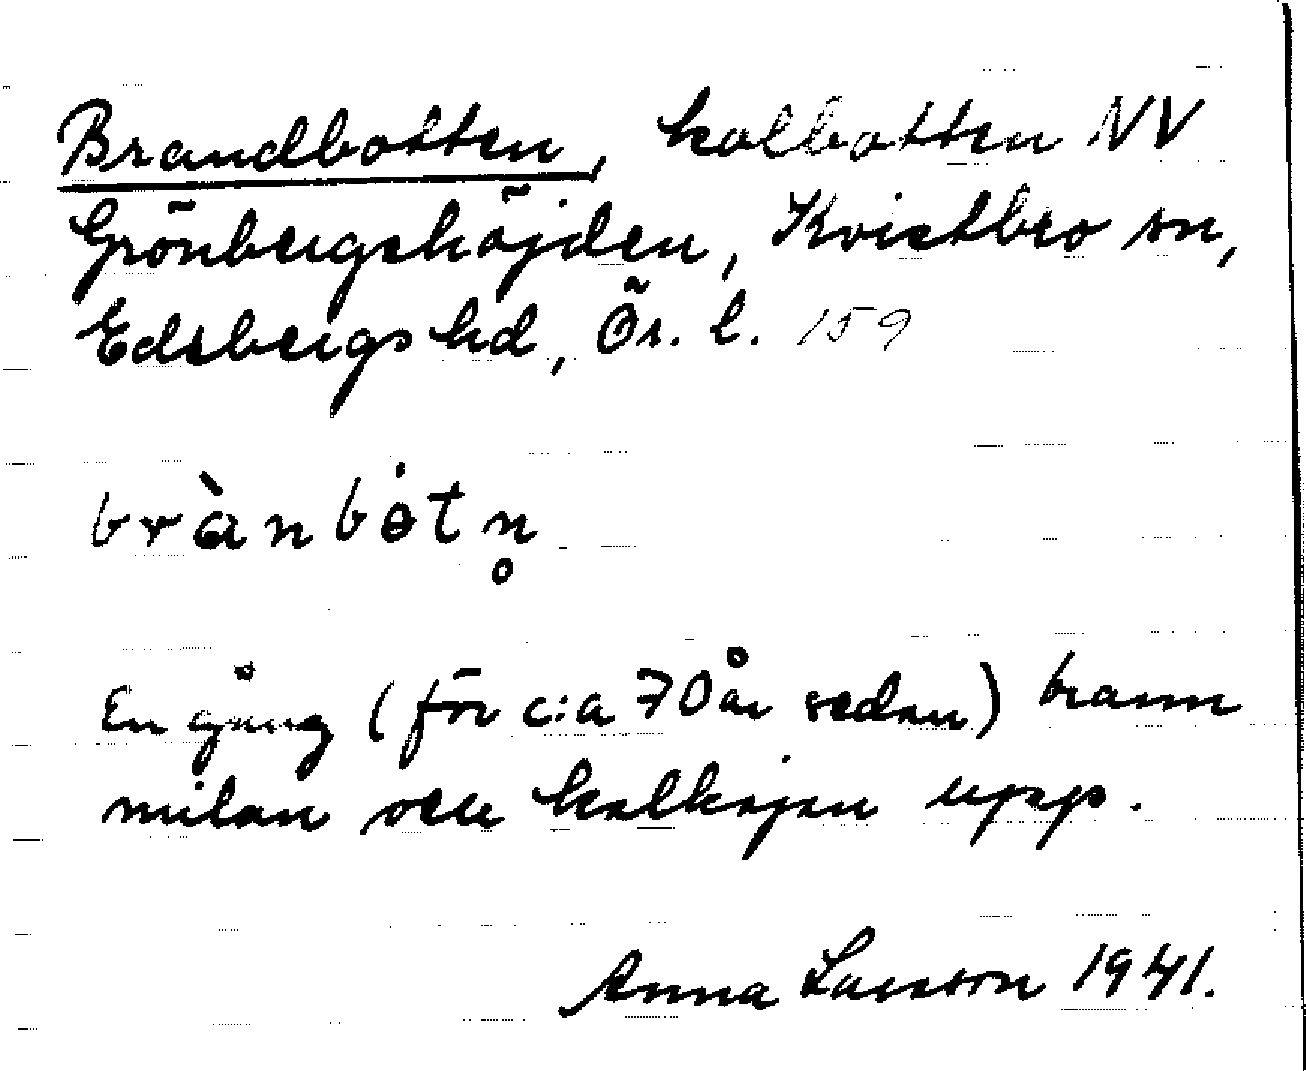 Brandbotten, kolbotten NV
Grönbergshöjden, Kvistbro sn,
Edsbergs hd, Ör. l. 159
brànbòtn̥
En gång (för c:a 70 år sedan) brann
milan och kolkojan upp.
Anna Larsson 1941.